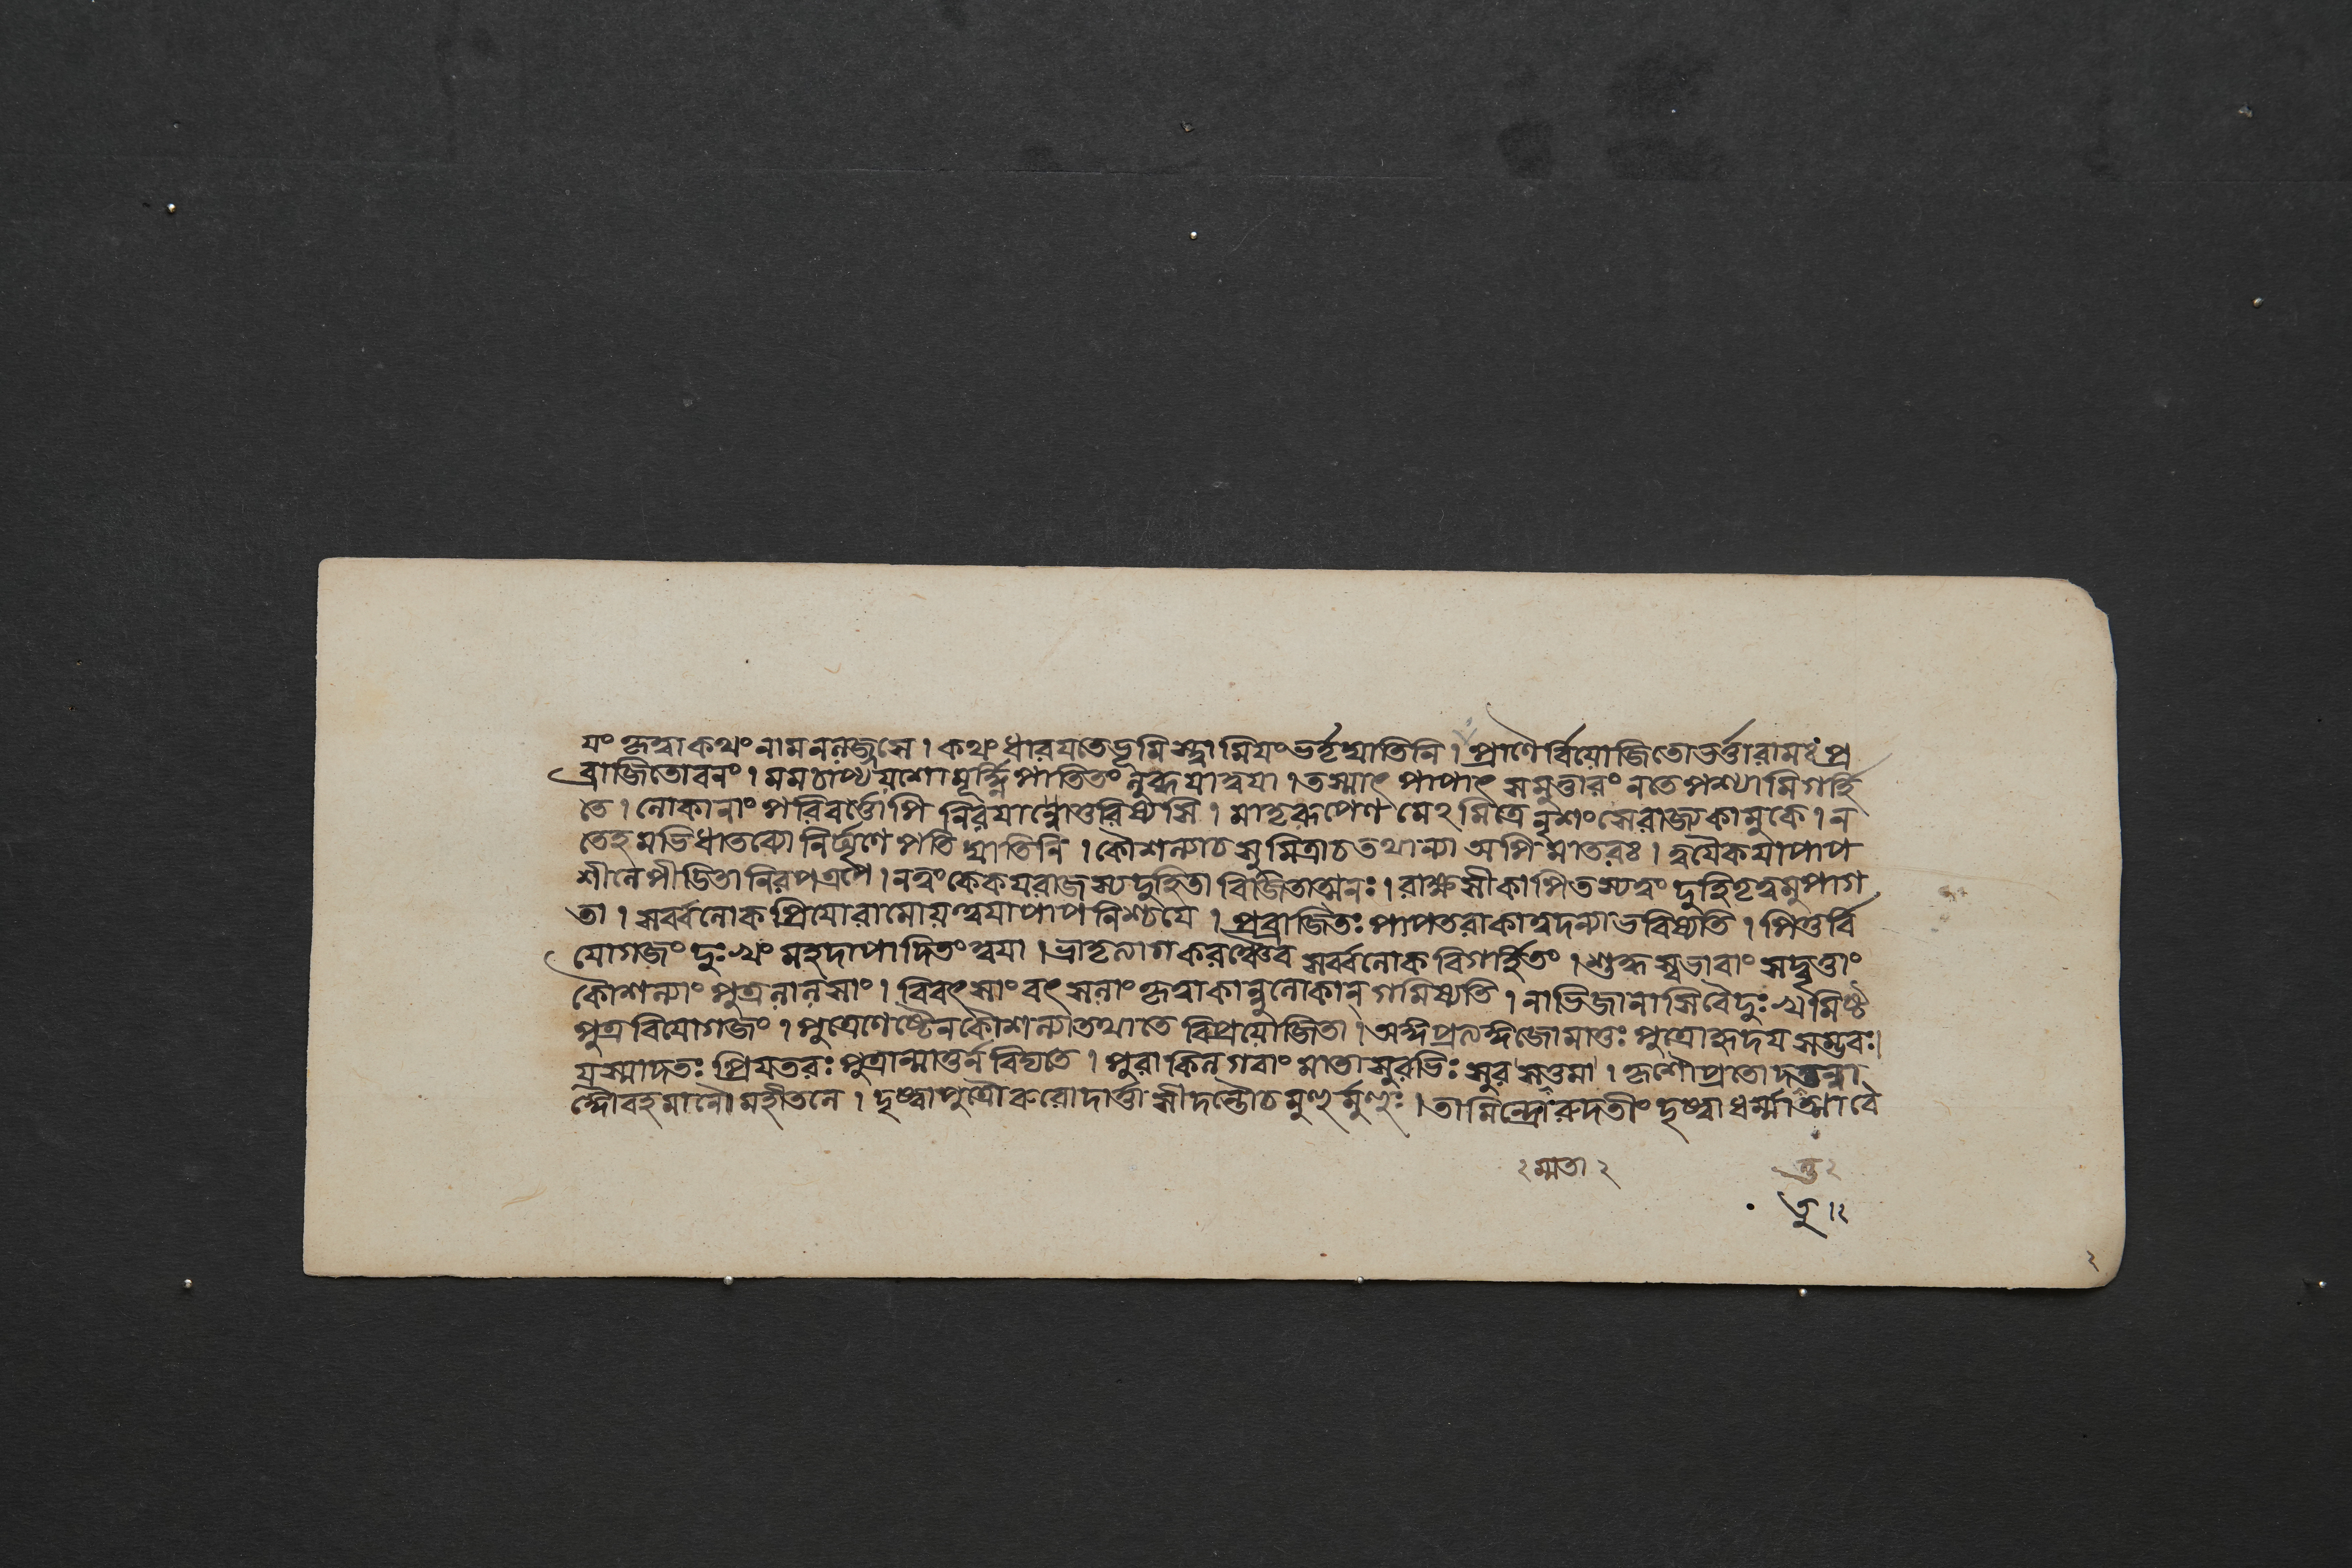 যং কৃত্বাকথং নামননলজ্জসে । কথং ধারয়তেভূমিস্ত্বামিয়ং ভর্তৃঘাতিনি । প্রাণৈর্বিয়োজিতোভর্ত্তারামঃ প্র
ব্রাজিতোবনং । মমচাপ্যযশোমূর্দ্ধ্নিপাতিতং ত্বয়া । তস্মাৎ পাপাৎ সমুত্তারং নতেপশ্যামিগর্হি
তে । লোকানাং পরিবর্ত্তোপি নিরয়ান্নোত্তরিষ্যসি । মাতৃরূপেণ মেঽমিত্রে নৃশংসেরাজ্যকামুকে । ন
তেহমভিধাতব্যো নির্ঘৃণে পতিঘাতিনি । কৌশল্যাচ সুমিত্রাচ তথান্যা অপি মাতরঃ । ত্বয়ৈকয়াপাপ
শীলেপীডিতানিরপত্রপে । নত্বংকেকয়রাজস্যদুহিতা বিজিতাত্মনঃ । রাক্ষসীকাপিতস্যত্বং দুহিতৃত্বমুপাগ
তা । সর্ব্বলোকপ্রিয়োরামোয়ত্ত্বয়াপাপনিশ্চয়ে । প্রব্রাজিতঃ পাপতরাকাত্বদন্যাভবিষ্যতি । পিতুর্বি
য়োগজং দুঃখং মহদাপাদিতং ত্বয়া । ভ্রাতৃনাশকরঞ্চৈব সর্ব্বলোকবিগর্হিতং । শুদ্ধস্বভাবাং সদ্বৃত্তাং
কৌশল্যাং পুত্রলালসাং । বিবৎসাং বৎসলাং কৃত্বাকান্নুলোকান্ গমিষ্যতি । নাভিজানাসিবৈদুঃখমিষ্ট
পুত্রবিয়োগজং । পুত্রেণেষ্টেনকৌশল্যাতথাতে বিপ্রয়োজিতা । অঙ্গপ্রত্যঙ্গজোমাতুঃ পুত্রোহৃদয়সম্ভবঃ।
য়স্মাদতঃ প্রিয়তরঃ পুত্রান্মাতুর্ন বিদ্যতে । পুরাকিলগবাং মাতা সুরভিঃ সুরসত্তমা । কৃশৌপ্রতোদ
ঙ্গৌবহমানৌ মহীতলে । দৃষ্ট্বাপুত্রৌ রুরোদার্ত্তা সীদন্তৌচমুহুর্মুহুঃ । তামিন্দ্রোরুদতীং দৃষ্ট্বাধর্ম্মাত্মাবৈ
২ ম্মতা ২
তু ২
তু ।২
২